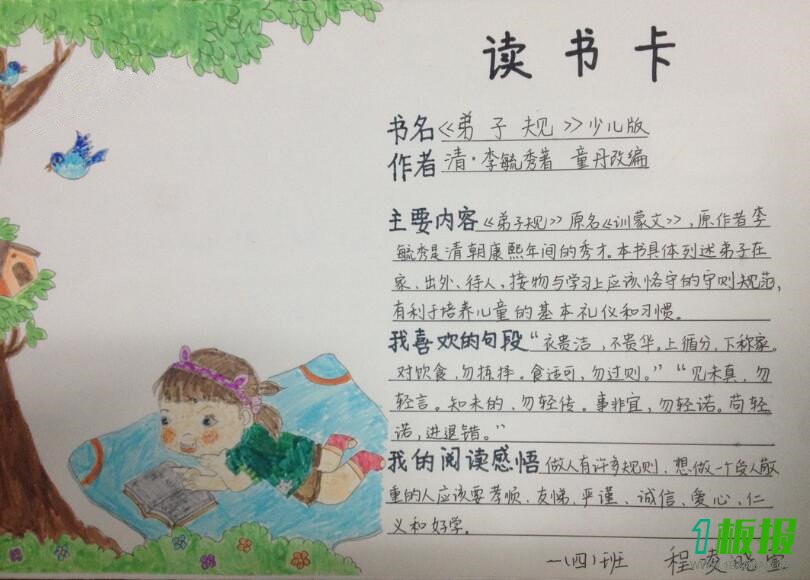 读书卡
书名《弟子规》少儿版
作者清·李毓秀著 童丹改编
主要内容《弟子规》原名《训蒙文》,原作者李
毓秀是清朝康熙年间的秀才。本书具体列述弟子在
家、出外、待人、接物与学习上应该恪守的守则规范,
有利于培养儿童的基本礼仪和习惯。
我喜欢的句段“衣贵洁,不贵华。上循分,下称家。
对饮食,勿拣择。食适可,勿过则。”“见未真,勿
轻言。知未的,勿轻传。事非宜,勿轻诺。苟轻
诺,进退错。”
我的阅读感悟 做人有许多规则,想做一个受人敬
重的人应该要孝顺、友悌、严谨、诚信、爱心、仁
义和好学。
一(四)班 程凌晓宣
1板报